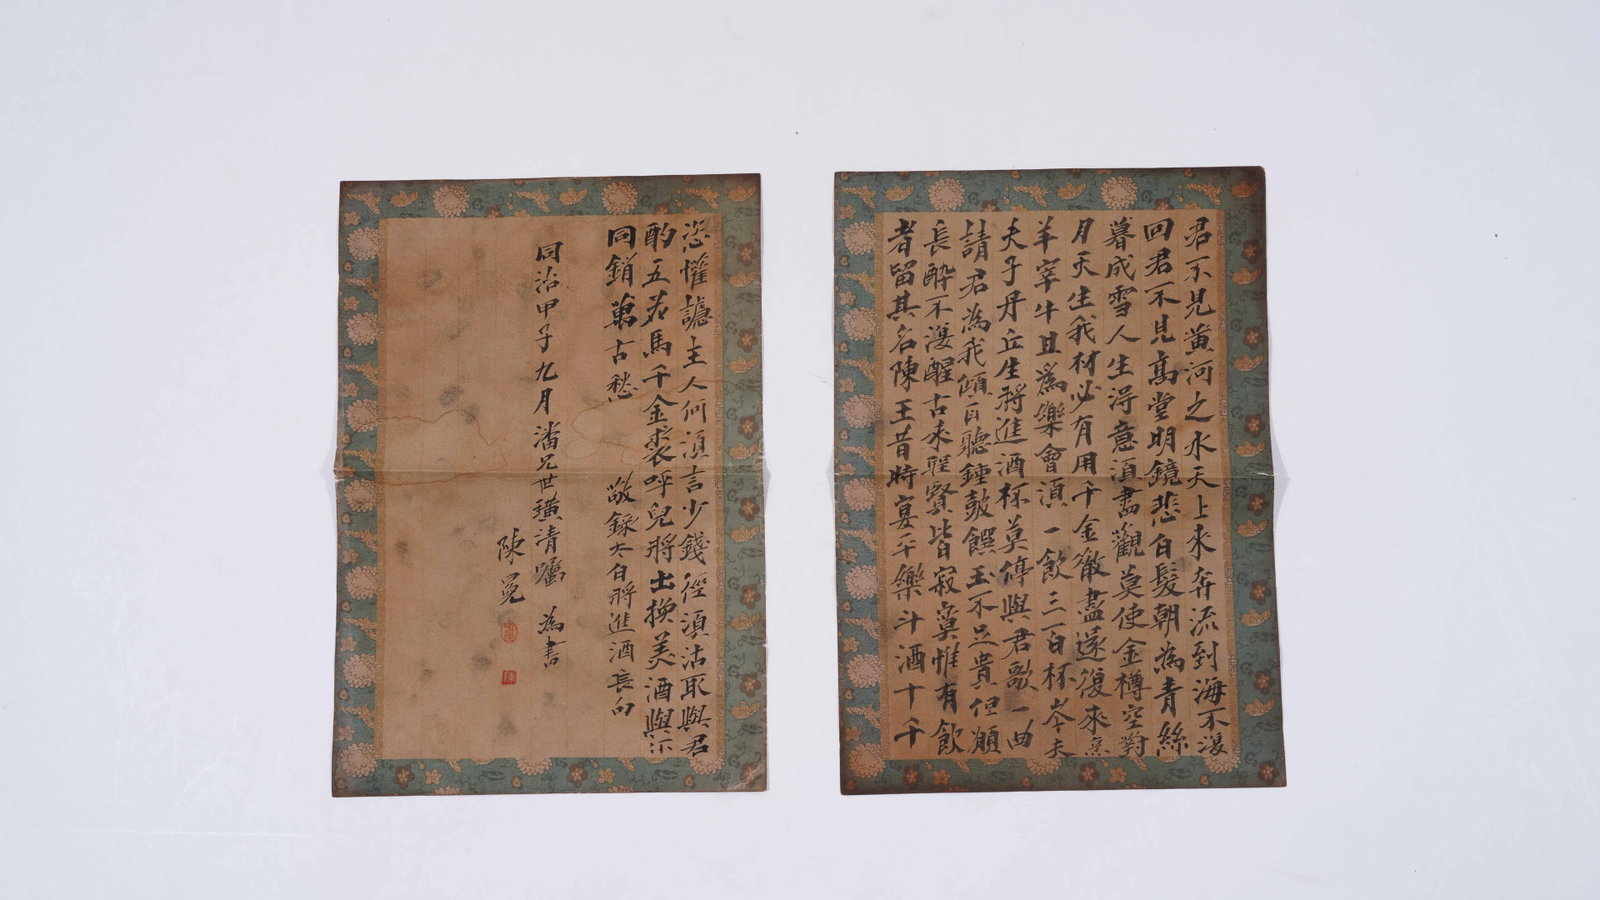 君不見黃河之水天上來奔流到海不復
回君不見高堂明鏡悲白髮朝為青絲
暮成雪人生得意須盡觀莫使金樽空對
月天生我材必有用千金徹盡還復來烹
羊宰牛且為樂會須一飲三百杯岑夫
夫子丹丘生將進酒杯莫停與君歌一曲
請君為我傾耳聽鍾鼓饌玉不足貴但願
長醉不復醒古來聖賢皆寂寞惟有飲
者留其名陳王昔時宴平樂斗酒十千
恣懽謔主人何須言少錢徑須沽取與君
酌五花馬千金裘呼兒將出換美酒與尒
同銷萬古愁 敬錄太白將進酒長句
同治甲子九月潘兄世璜清囑 為書
陳冕